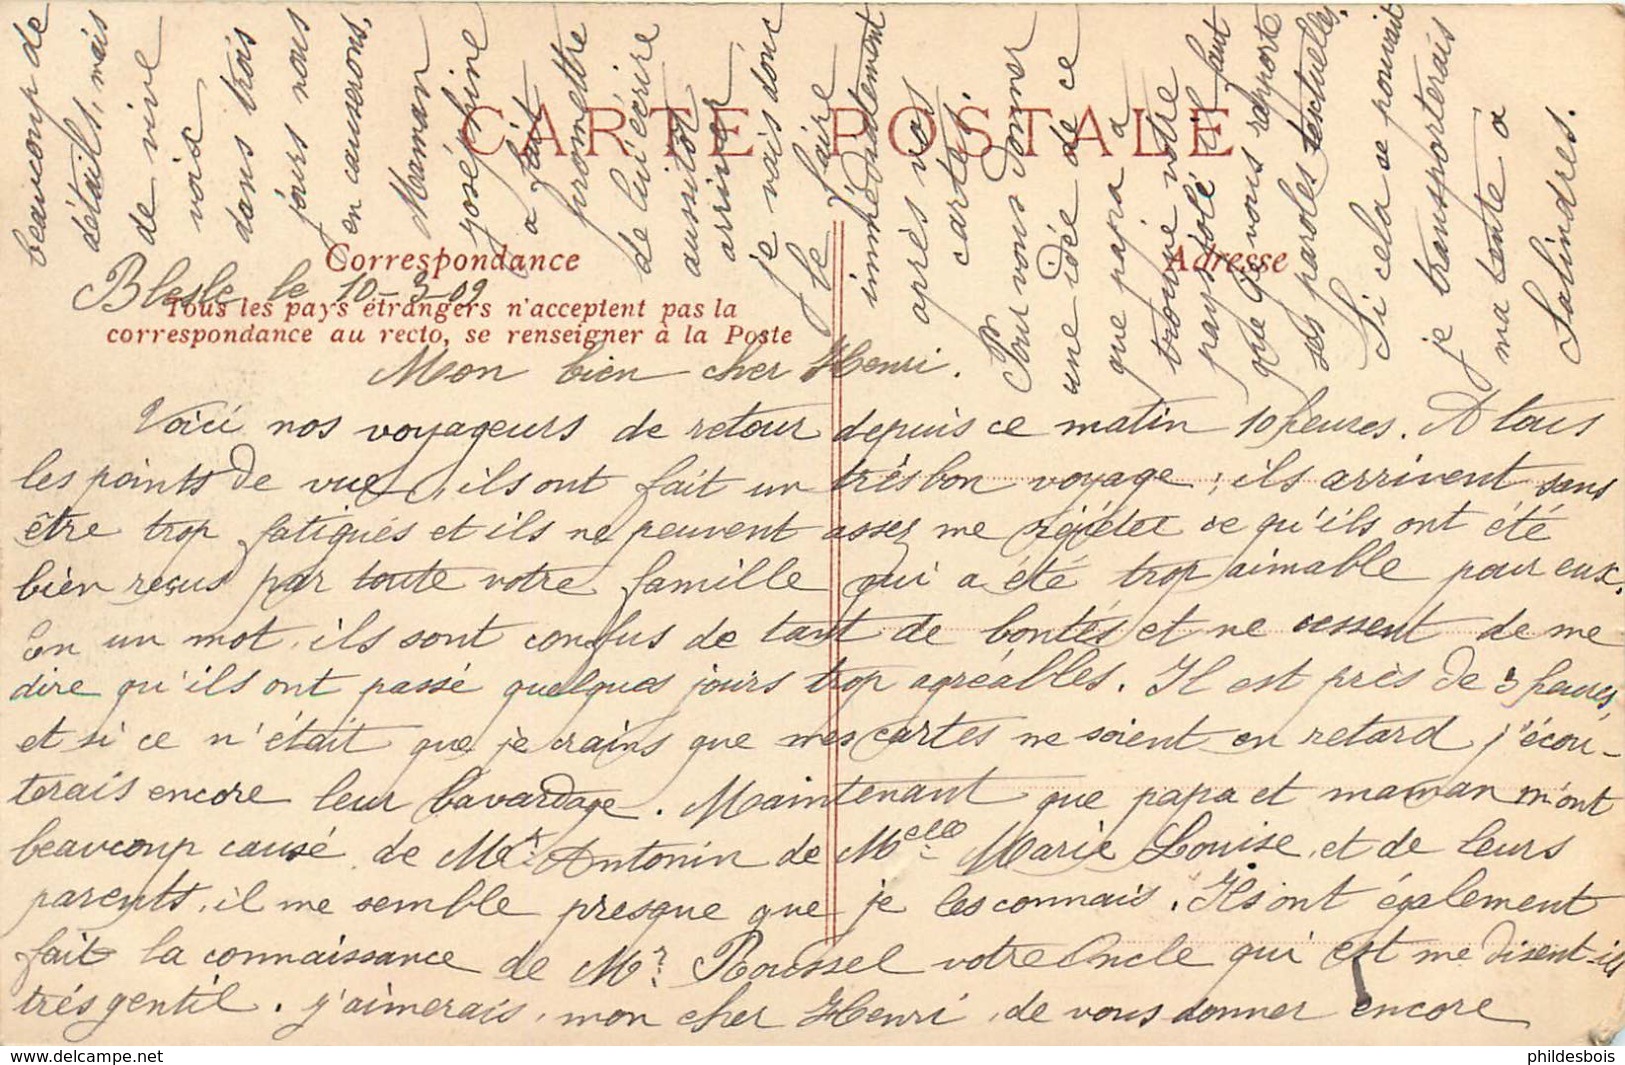 CARTE POSTALE
Correspondance
Adresse
Tous les pays étrangers n'acceptent pas la
correspondance au recto, se renseigner à la Poste
Blesle le 10-3-09
Mon bien cher Henri.
Voici nos voyageurs de retour depuis ce matin 10 heures. A tous
les points de vue, ils ont fait un très bon voyage ; ils arrivent sans
être trop fatigués et ils ne peuvent assez me répéter ce qu'ils ont été
bien reçus par toute votre famille qui a été trop aimable pour eux.
En un mot, ils sont confus de tant de bontés et ne cessent de me
dire qu'ils ont passé quelques jours trop agréables. Il est près de 3 heures,
et si ce n'était que je crains que mes cartes ne soient en retard j'écou-
terais encore leur bavardage. Maintenant que papa et maman m'ont
beaucoup causé de Mr Antonin de Melle Marie Louise, et de leurs
parents, il me semble presque que je les connais. Ils ont également
fait la connaissance de Mr Roussel votre Oncle qui est me disent-ils
très gentil. J'aimerais, mon cher Henri, de vous donner encore
beaucoup de
détails, mais
de vive
voix
dans trois
jours nous
en causerons.
Maman
Joséphine
a fait
promettre
de lui écrire
aussitôt
arriver
je vais donc
le faire
immédiatement
après vos
cartes.
Pour vous donner
une idée de ce
que papa a
trouvé votre
pays joli il faut
que je vous rapporte
ses paroles textuelles.
Si cela se pouvait
je transporterais
ma tente à
Salindres.
phildesbois